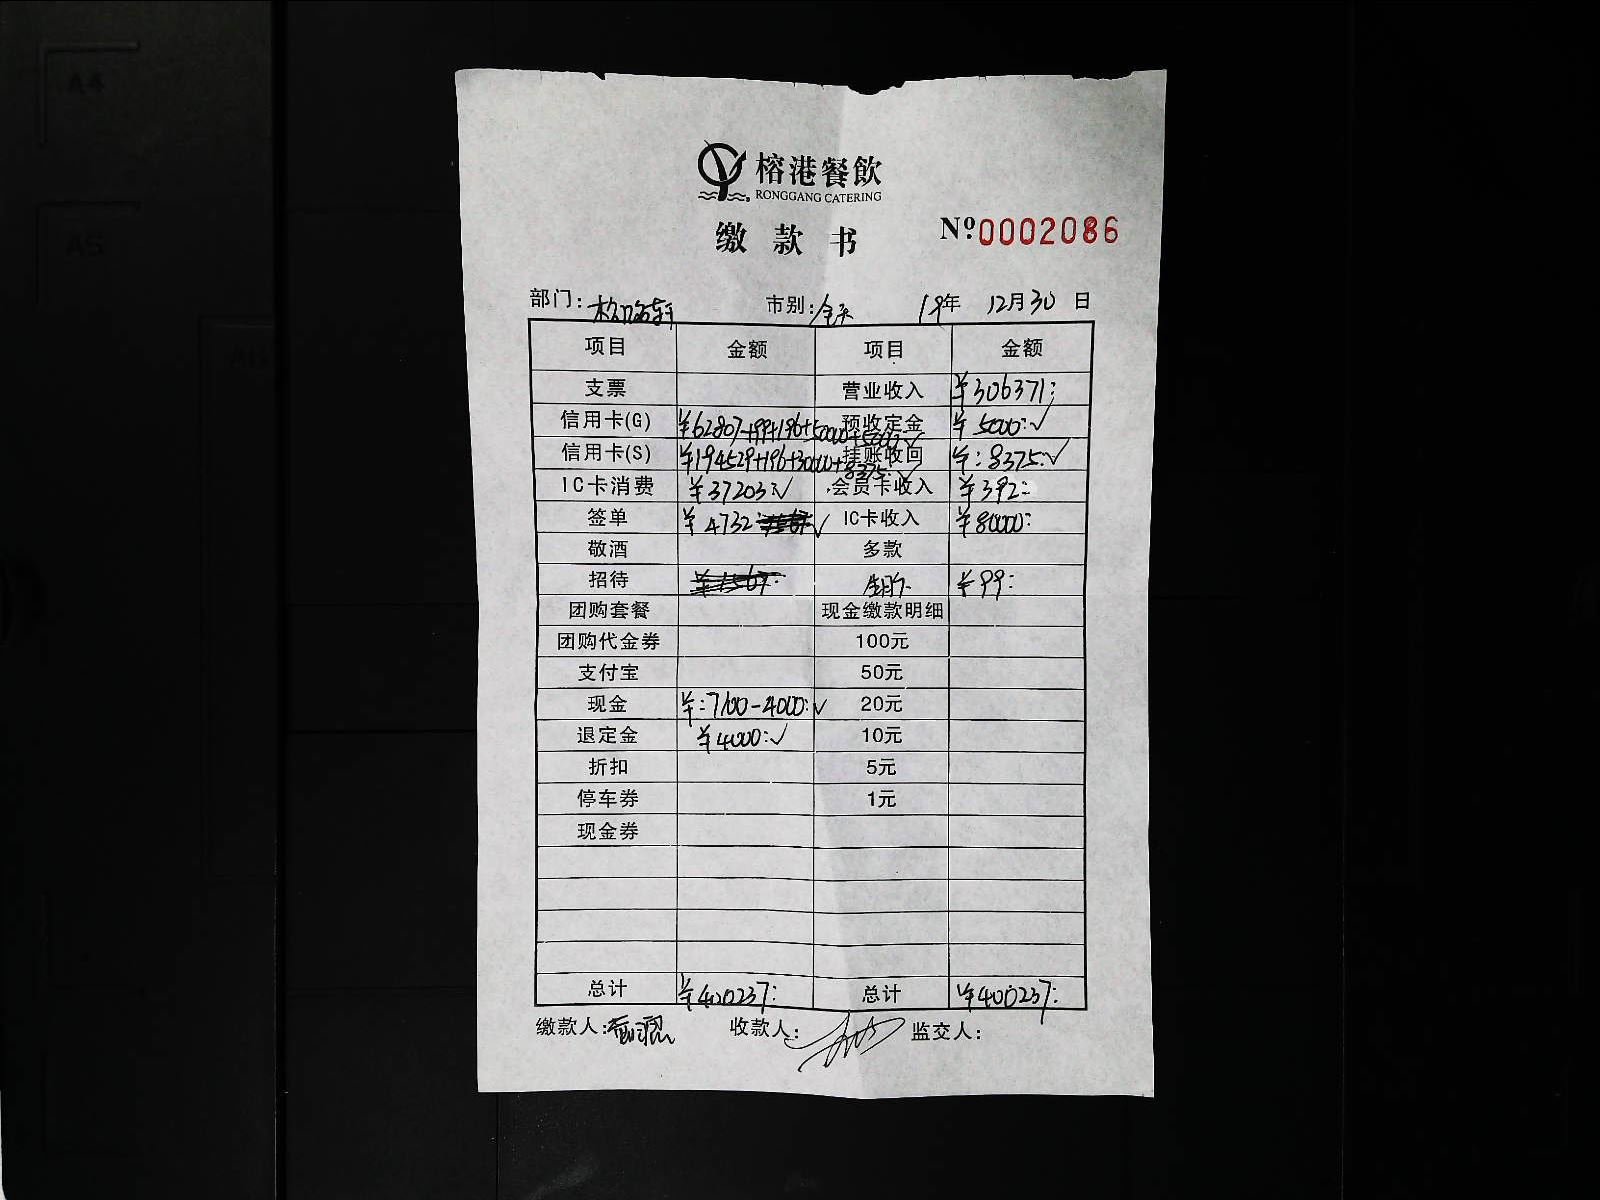 榕港餐飲
RONGGANG CATERING
缴款书 №0002086
部门: 市别:全天 19年 12月30日
项目 金额 项目 金额
支票 营业收入 ¥306371:
信用卡(G) ¥62807+99+196+50000+5000:✓ 预收定金 ¥5000:✓
信用卡(S) ¥194529+196+30000+8375:✓ 挂账收回 ¥:8375:✓
IC卡消费 ¥37203:✓ 会员卡收入 ¥392:
签单 ¥4732: ✓ IC卡收入 ¥80000:
敬酒 多款
招待 ¥99:
团购套餐 现金缴款明细
团购代金券 100元
支付宝 50元
现金 ¥:7100-4000:✓ 20元
退定金 ¥4000:✓ 10元
折扣 5元
停车券 1元
现金券
总计 ¥400237: 总计 ¥400237:
缴款人: 收款人: 监交人:
A4
A5